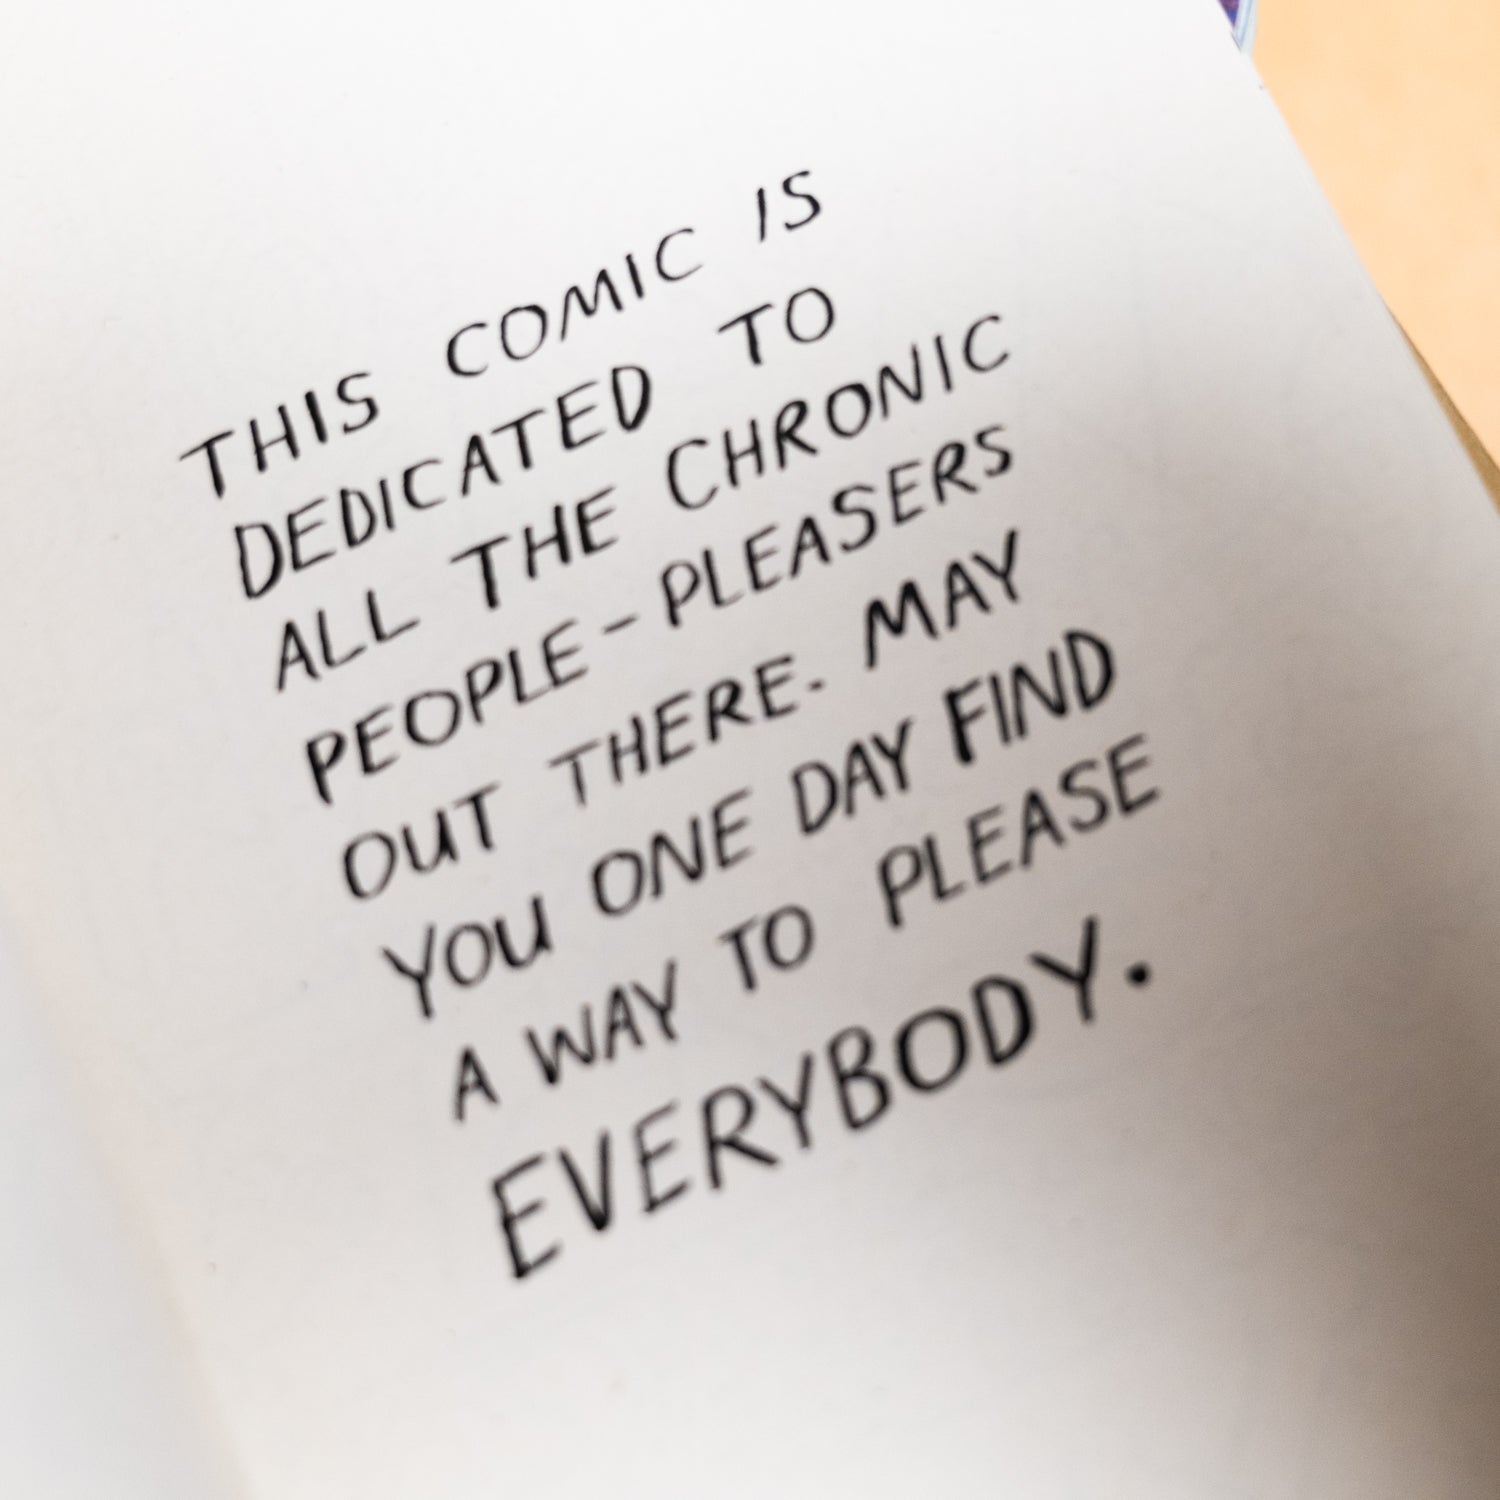 THIS COMIC IS
DEDICATED TO
ALL THE CHRONIC
PEOPLE-PLEASERS
OUT THERE. MAY
YOU ONE DAY FIND
A WAY TO PLEASE
EVERYBODY.